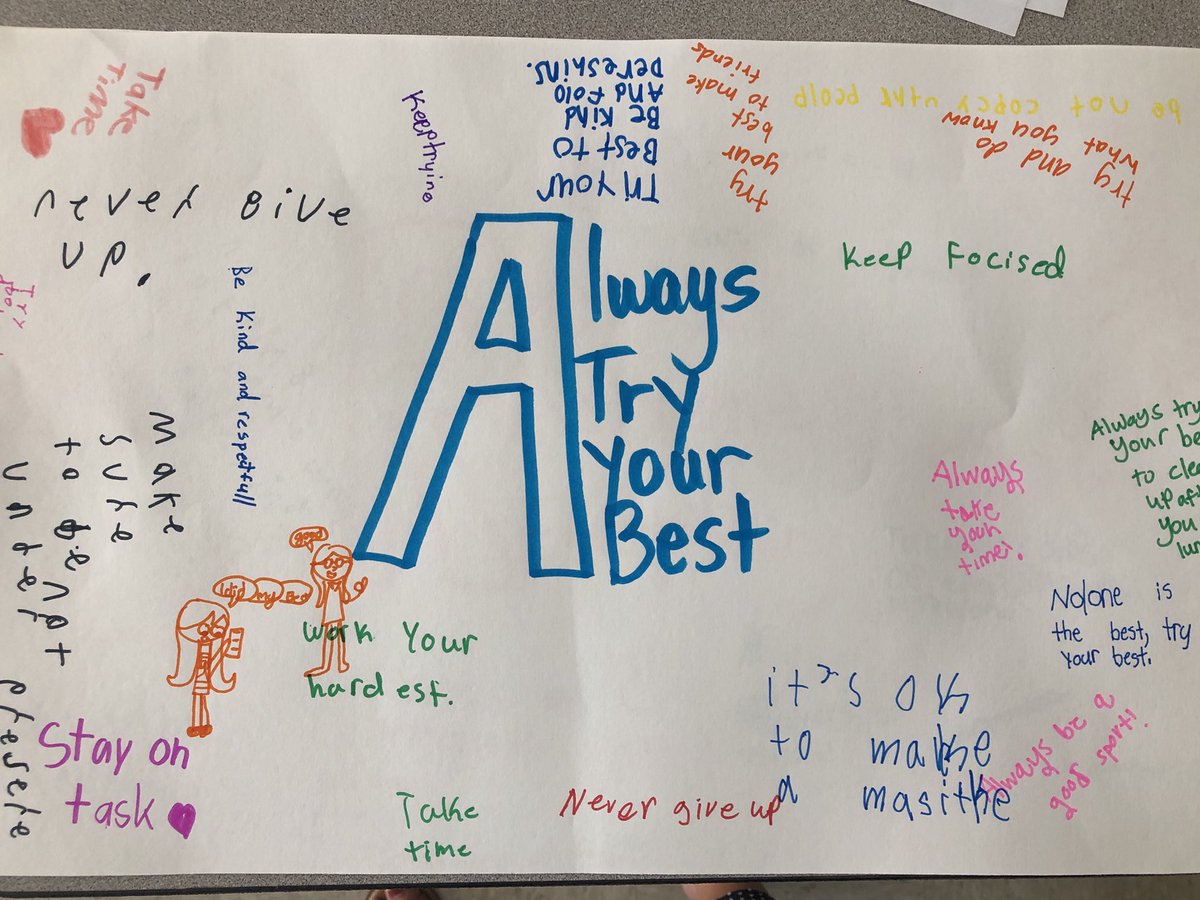 Always
Try
Your
Best
Take
Time
never give
up.
Keep trying
Tri your
Best to
Be kind
And Folo
Dereshins.
try
your
best
to make
friends
be not copey uthr peolp
try and do
what you know
Keep Focised
Be kind and respectfull
Try
make
sure
to be not
under presure
good
I did my Best
Work Your
hardest.
Stay on
task
Take
time
Never give up
it's ok
to make
a masitke
Always be a
good sport!
No one is
the best, try
your best.
Always
take
your
time.
Always try
your be
to clea
up aft
you
lun